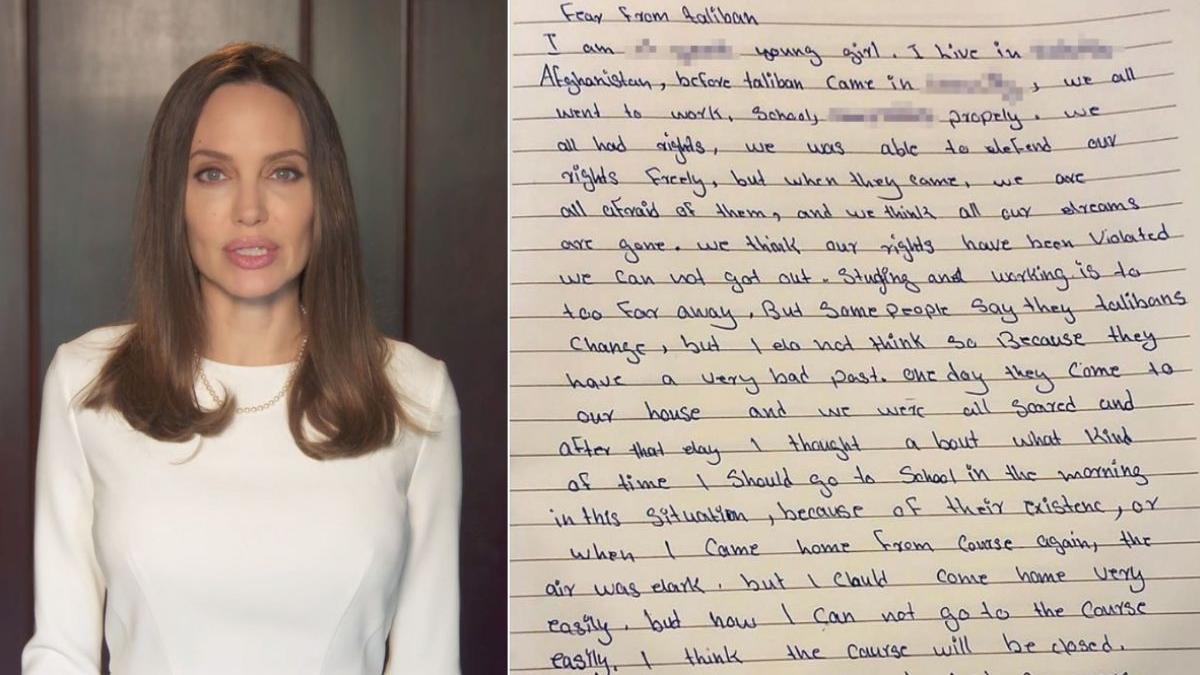 Fear from taliban
I am young girl. I live in
Afghanistan, before taliban came in , we all
went to work, school, propely. we
all had rights, we was able to defend our
rights freely, but when they came, we are
all afraid of them, and we think all our dreams
are gone. we think our rights have been violated
we can not got out. studing and working is to
too far away. But some people say they talibans
change, but I do not think so Because they
have a very bad past. one day they come to
our house and we were all scared and
after that day I thought a bout what kind
of time I should go to school in the morning
in this situation, because of their existenc, or
when I came home from course again, the
air was dark. but I could come home very
easily. but how I can not go to the course
easily. I think the course will be closed.